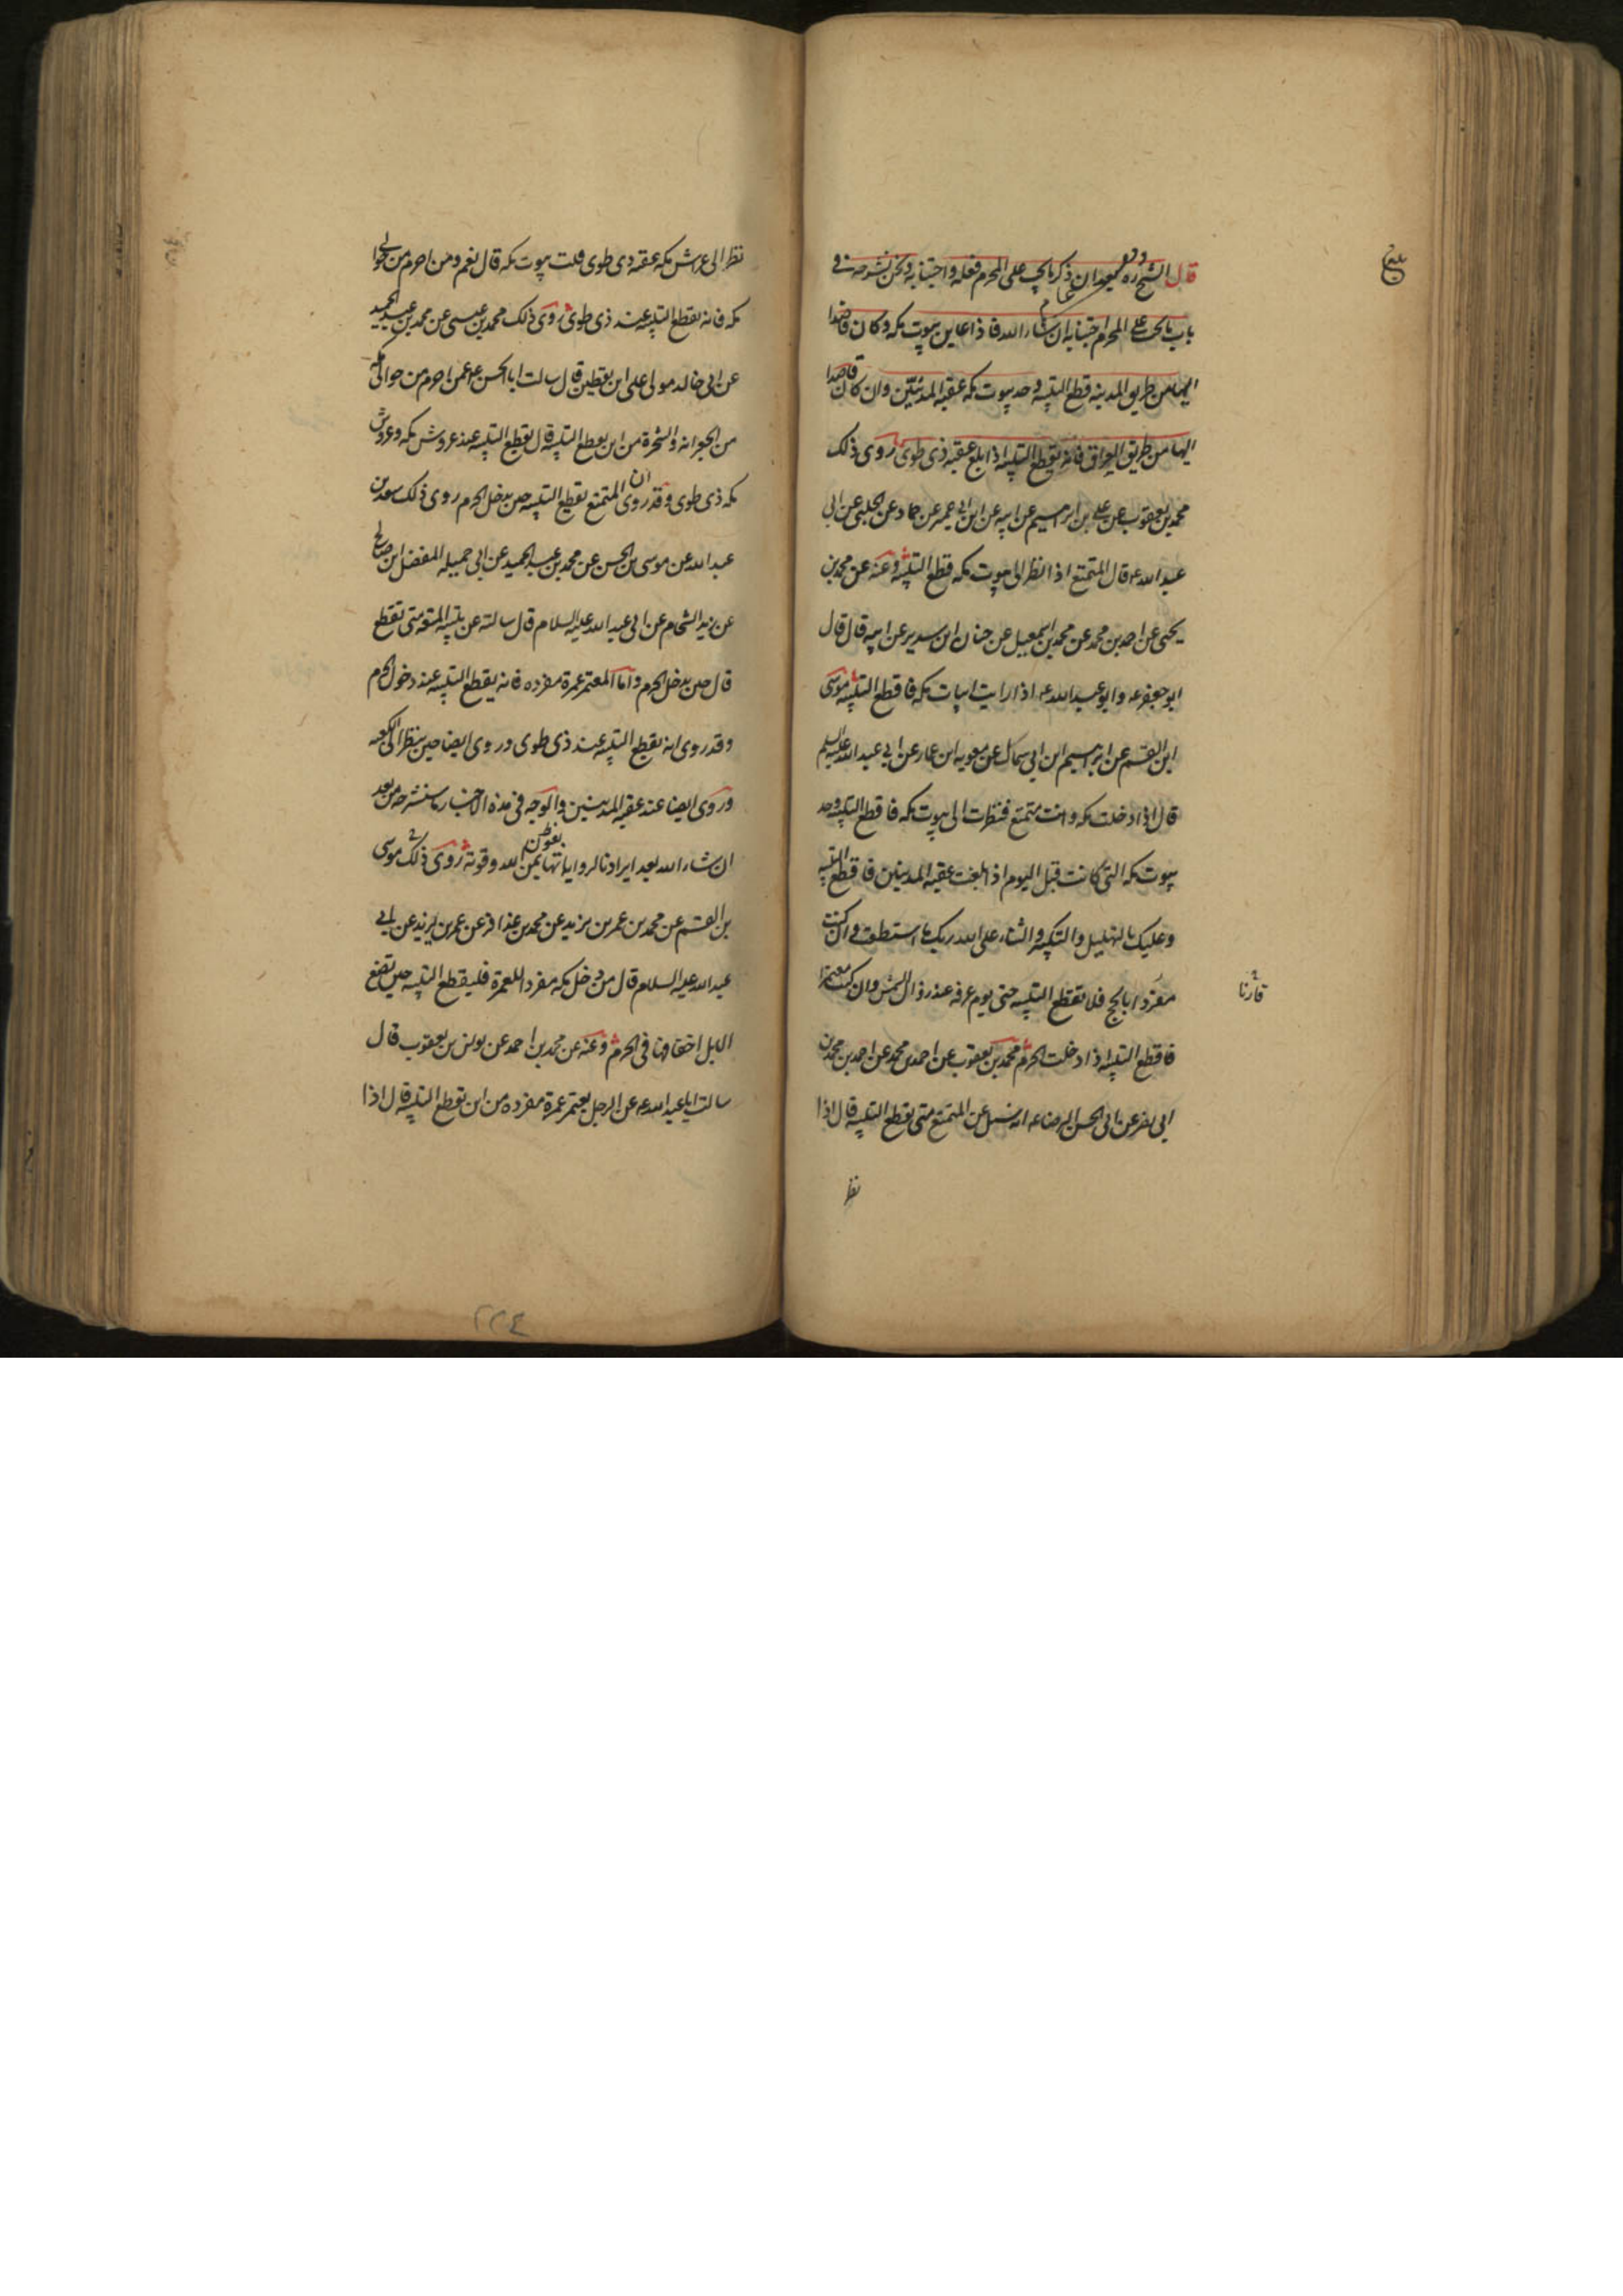 قال الشيخ ره بعد ان ذكر ما يجب على المحرم فعله واجتنابه ونحن نشرحه في
باب ما يجب على المحرم اجتنابه ان شاء الله فاذا عاين بيوت مكه وكان قاصدا
اليها من طريق المدينه قطع التلبيه وحد بيوت مكه عقبه المدنيين وان كان قاصدا
اليها من طريق العراق فانه يقطع التلبيه اذا بلغ عقبه ذى طوى روى ذلك
محمد بن يعقوب عن على بن ابرهيم عن ابيه عن ابن ابى عمير عن حماد عن الحلبى عن ابى
عبد الله ع قال المتمتع اذا نظر الى بيوت مكه قطع التلبيه وعنه عن محمد بن
يحيى عن احمد بن محمد عن محمد بن اسمعيل عن حنان ابن سدير عن ابيه قال قال
ابو جعفر ع وابو عبد الله ع اذا رايت ابيات مكه فاقطع التلبيه موسى
ابن القسم عن ابرهيم ابن ابى سماك عن معويه ابن عمار عن ابى عبد الله عليه السلم
قال اذا دخلت مكه وانت متمتع فنظرت الى بيوت مكه فاقطع التلبيه وحد
بيوت مكه التى كانت قبل اليوم اذا بلغت عقبه المدنيين فاقطع التلبيه
وعليك بالتهليل والتكبير والثناء على الله ربك ما استطعت وان كنت
قارنا
مفردا بالحج فلا تقطع التلبيه حتى يوم عرفه عند زوال الشمس وان كنت معتمرا
فاقطع التلبيه اذا دخلت الحرم محمد بن يعقوب عن احمد بن محمد عن احمد بن محمد بن
ابى نصر عن ابى الحسن الرضا ع انه سئل عن المتمتع متى يقطع التلبيه قال اذا
نظر
نظر الى عراش مكه عقبه ذى طوى قلت بيوت مكه قال نعم ومن احرم من حوالى
مكه فانه يقطع التلبيه عند ذى طوى روى ذلك محمد بن عيسى عن محمد بن عبد الحميد
عن ابى خالد مولى على ابن يقطين قال سالت ابا الحسن ع عمن احرم من حوالى مكه
من الجعرانه والشجرة من اين يقطع التلبيه قال يقطع التلبيه عند عروش مكه وعروش
مكه ذى طوى وقد روى ان المتمتع يقطع التلبيه حين يدخل الحرم روى ذلك سعد بن
عبد الله عن موسى بن الحسن عن محمد بن عبد الحميد عن ابى جميله المفضل ابن صالح
عن زيد الشحام عن ابى عبد الله عليه السلام قال سالته عن تلبيه المتعه متى تقطع
قال حين يدخل الحرم واما المعتمر عمرة مفرده فانه يقطع التلبيه عند دخول الحرم
وقد روى انه يقطع التلبيه عند ذى طوى وروى ايضا حين ينظر الى الكعبه
وروى ايضا عند عقبه المدنيين والوجه فى هذه الاخبار ما سنشرحه من بعد
ان شاء الله بعد ايرادنا لرواياتها بمن الله وقوته روى ذلك موسى
بن القسم عن محمد بن عمر بن يزيد عن محمد بن عذافر عن عمر بن يزيد عن ابى
عبد الله عليه السلام قال من دخل مكه مفردا للعمرة فليقطع التلبيه حين تضع
الابل اخفافها فى الحرم وعنه عن محمد بن احمد عن يونس بن يعقوب قال
سالت ابا عبد الله ع عن الرجل يعتمر عمرة مفرده من اين يقطع التلبيه قال اذا
٢٢٤